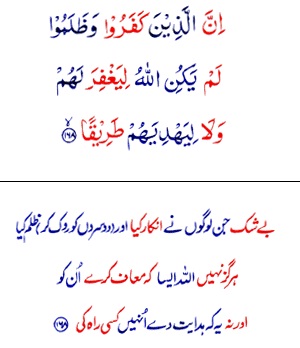 اِنَّ الَّذِيْنَ كَفَرُوْا وَظَلَمُوْا
لَمْ يَكُنِ اللهُ لِيَغْفِرَ لَهُمْ
وَلَا لِيَهْدِيَهُمْ طَرِيْقًا ۙ﴿۱۶۸﴾
بے شک جن لوگوں نے انکار کیا اور (دوسروں کو روک کر) ظلم کیا
ہر گز نہیں اللہ ایسا کہ معاف کرے اُن کو
اور نہ یہ کہ ہدایت دے اُنہیں کسی راہ کی ﴿۱۶۸﴾